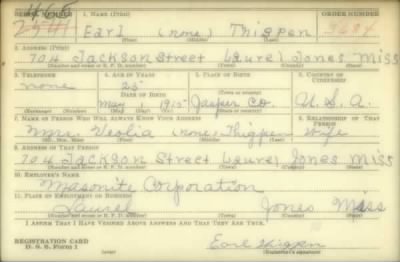 SERIAL NUMBER 1. NAME (Print) ORDER NUMBER
Earl (none) Thigpen 3684
(First) (Middle) (Last)
2. ADDRESS (Print)
704 Jackson Street Laurel Jones Miss
(Number and street or R. F. D. number) (Town) (County) (State)
3. TELEPHONE 4. AGE IN YEARS 5. PLACE OF BIRTH 6. COUNTRY OF CITIZENSHIP
none 25 Jasper Co. U. S. A.
DATE OF BIRTH
May 1 1915
(Exchange) (Number) (Mo.) (Day) (Yr.) (State or country)
7. NAME OF PERSON WHO WILL ALWAYS KNOW YOUR ADDRESS 8. RELATIONSHIP OF THAT PERSON
Mrs. Neolia (none) Thigpen wife
(Mr., Mrs., Miss) (First) (Middle) (Last)
9. ADDRESS OF THAT PERSON
704 Jackson Street Laurel Jones Miss
(Number and street or R. F. D. number) (Town) (County) (State)
10. EMPLOYER'S NAME
Masonite Corporation
11. PLACE OF EMPLOYMENT OR BUSINESS
Laurel Jones Miss
(Number and street or R. F. D. number) (Town) (County) (State)
I AFFIRM THAT I HAVE VERIFIED ABOVE ANSWERS AND THAT THEY ARE TRUE.
REGISTRATION CARD
D. S. S. Form 1
Earl Thigpen
(Registrant's signature)